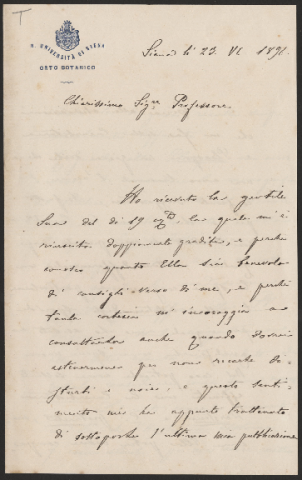 T
R. UNIVERSITÀ DI SIENA
ORTO BOTANICO
Siena li 23. VI 1891
Chiarissimo Sigre Professore.
Ho ricevuto la gentile
Sua del dì 19 , la quale mi è
riuscita doppiamente gradita, e perchè
quanto Ella sia benevola
di consigli verso di me, e perchè
tanta cortesia mi incoraggia a
anche quando dovrei
astenermene per non recarle di-
sturbi e noie, e questo senti-
mento mi ha appunto trattenuto
di sottoporle l'ultima mia pubblicazione